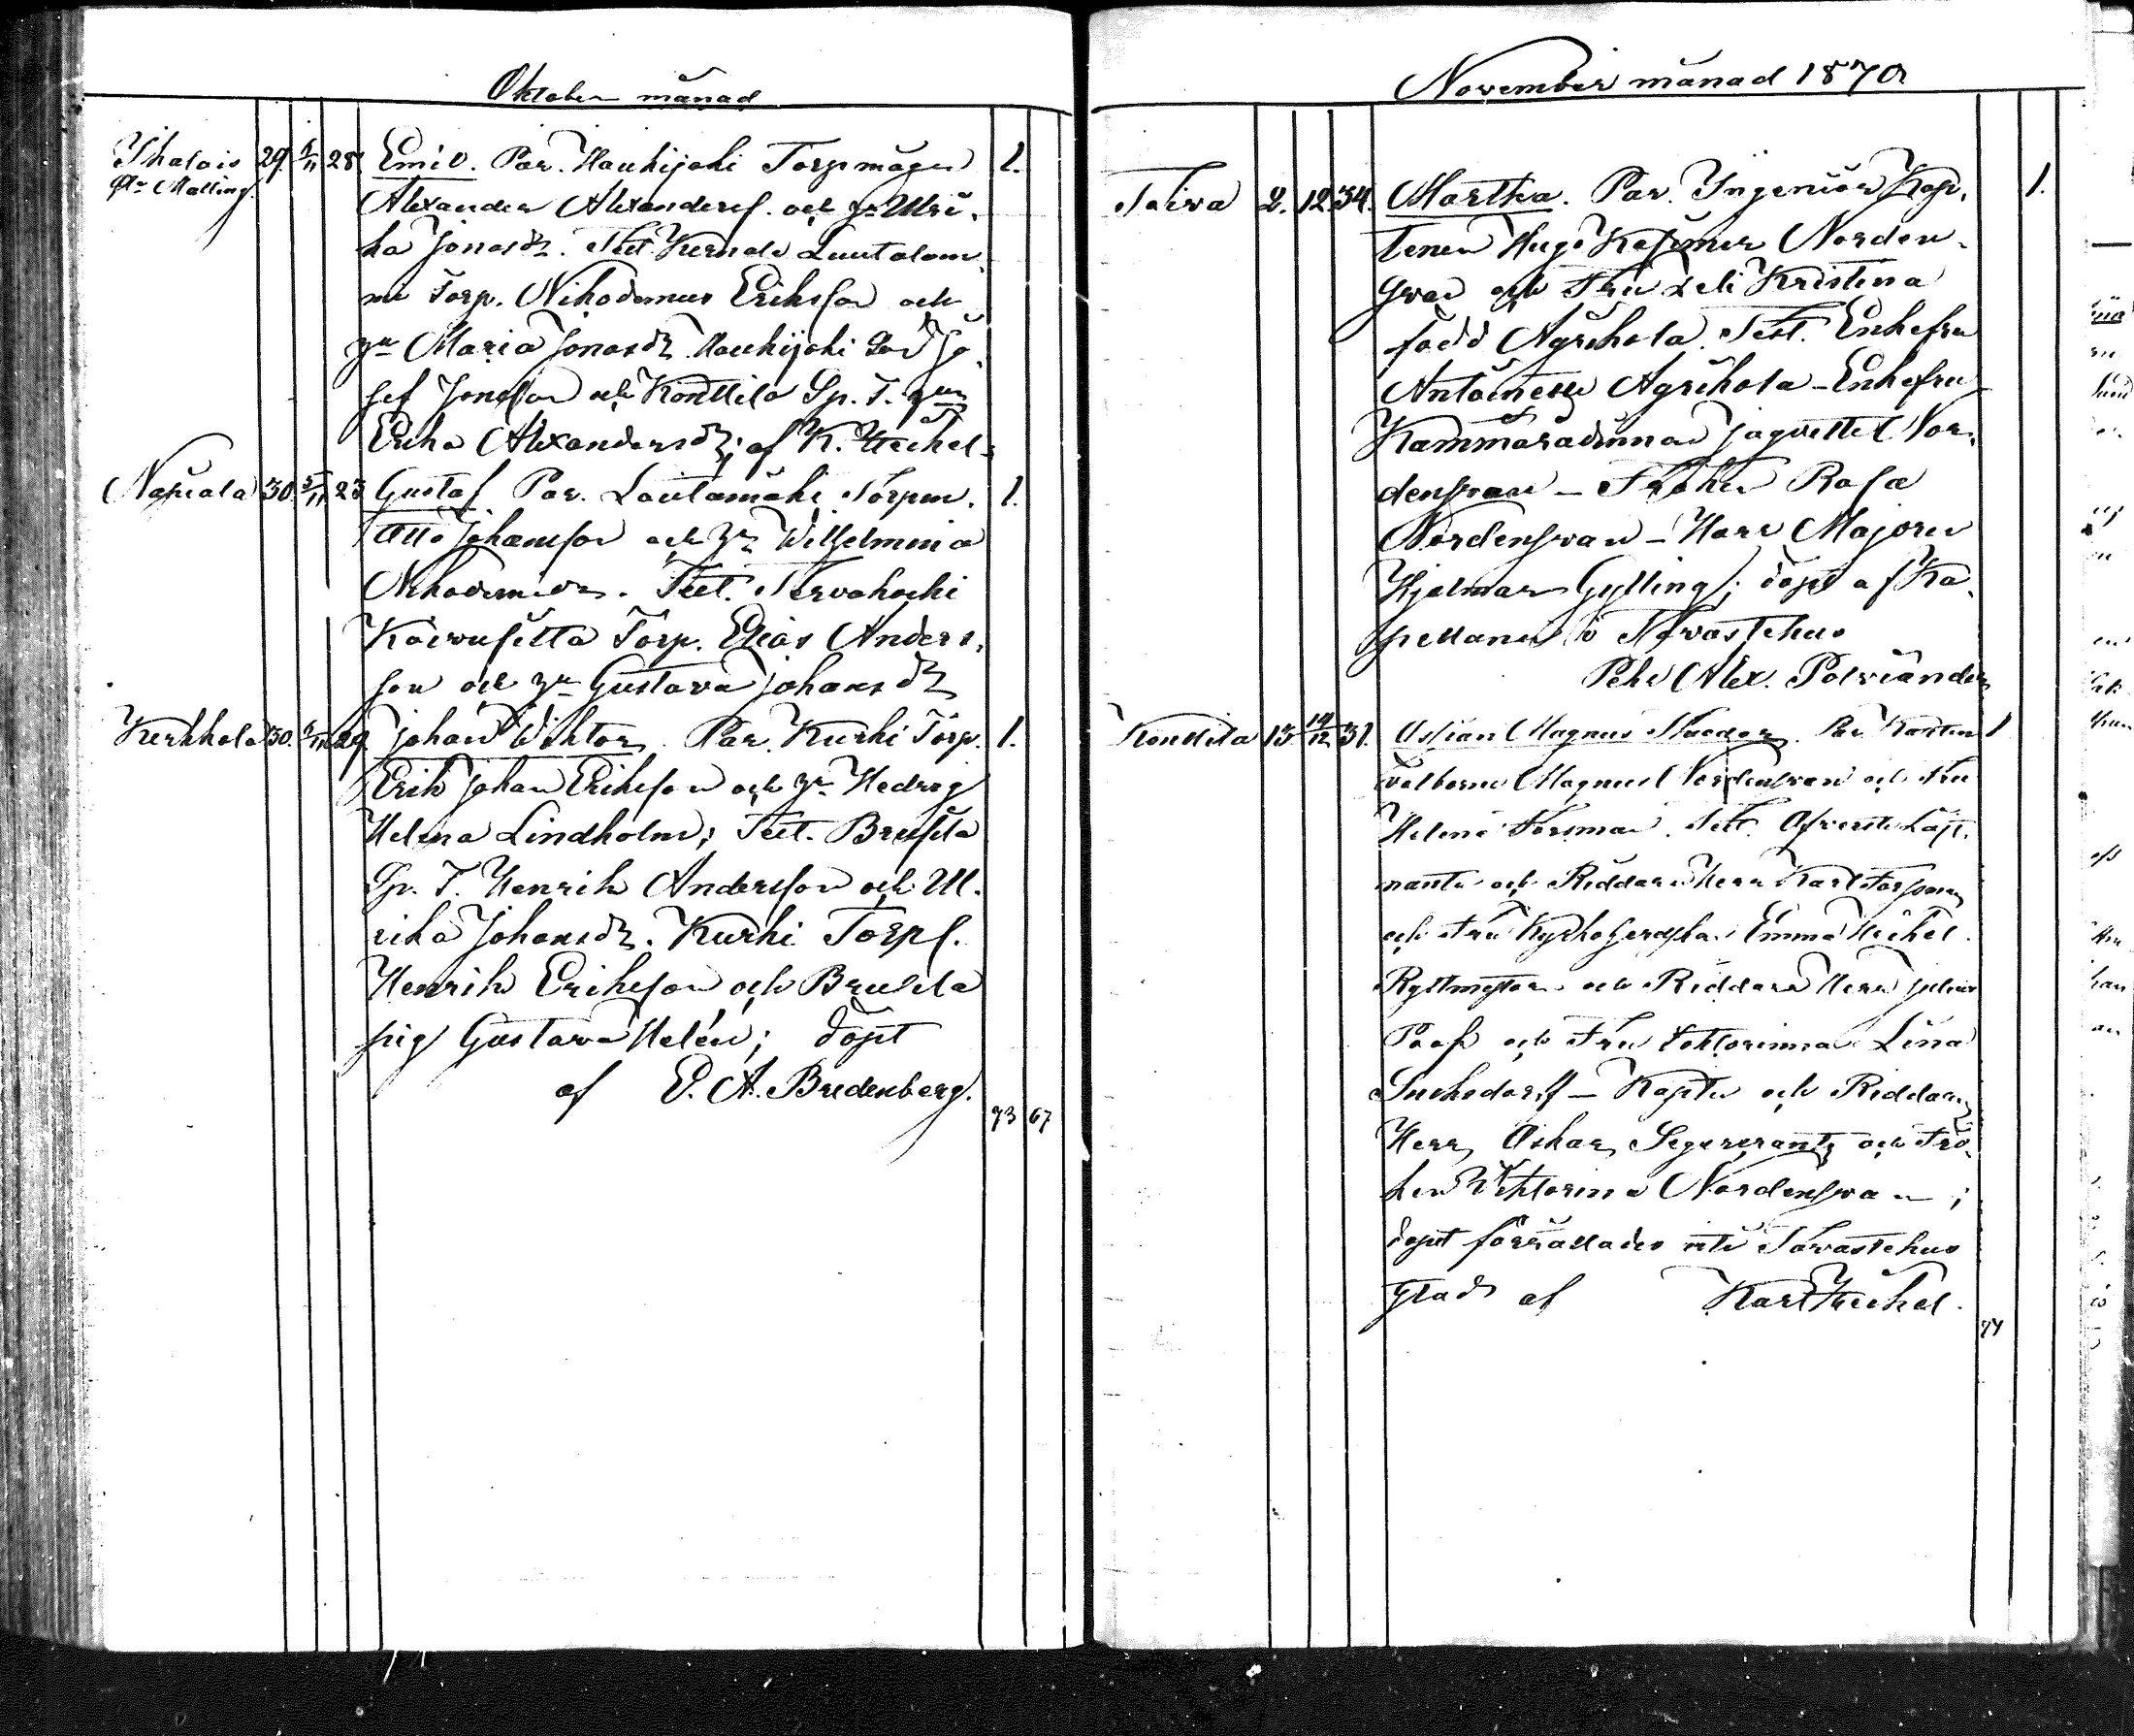 Oktober månad
Ihalais 29. 28. Emil. Par. Hauhijoki Torpmågen 1.
Alexander Alexanderss. och h:u Ulri-
ka Jonasdr. Test. Kernala Luutalam-
mi Torp. Nikodemus Eriksson och
h:u Maria Jonasdr. Hauhijoki Son Jo-
sef Jonsson och Konttila Sp. T. h:u
Erika Alexandersdr; af K. Heikel.
Napiala 30. 5/11 23 Gustaf Par. Lautamäki Torpm. 1.
Otto Johansson och h:u Wilhelmina
Nikodemidr. Test. Tervakoski
Torp. Elias Anders-
son och h:u Gustava Johansdr
Kerkkola 30. 29 Johan Wiktor. Par. Kurki Torp. 1.
Erik Johan Eriksson och h:u Hedvig
Helena Lindholm; Test. Brusila
Sp. T. Henrik Andersson och Ul-
rika Johansdr. Kurki Torps.
Henrik Eriksson och Brusila
pig. Gustava Helén; döpt
af E. A. Bredenberg.
93 67
November månad 1870
Toiva 2. 12. 34. Martha. Par. Ingeniör Kap- 1.
tenen Hugo Kasimir Norden-
svan och Fru Lili Kristina
född Agrikola. Test. Enkefru
Antoinette Agrikola - Enkefru
Kammarådinnan Jaquette Nor-
densvan - Fröken Rosa
Nordensvan - Herr Majoren
Hjalmar Gylling; döpt af Ka-
pellanen i Tavastehus
Pehr Alex. Polviander
Konttila 13 14/12 31. Ossian Magnus Par. Kapten 1
Valborn Magnus Nordensvan och Fru
Helene Forsman. Test. Öfverste Löjt-
nanten och Riddaren Herr Karl Forsman
och Fru Kyrkoherdska Emma Heikel.
Ryttmästaren och Riddaren Herr Julius
och Fru Doktorinna Lina
Suchsdorff - Kapten och Riddaren
Herr Oskar Segercrantz och Frö-
ken Viktorina Nordensvan;
dopet förrättades uti Tavastehus
Stad af Karl Heikel.
94